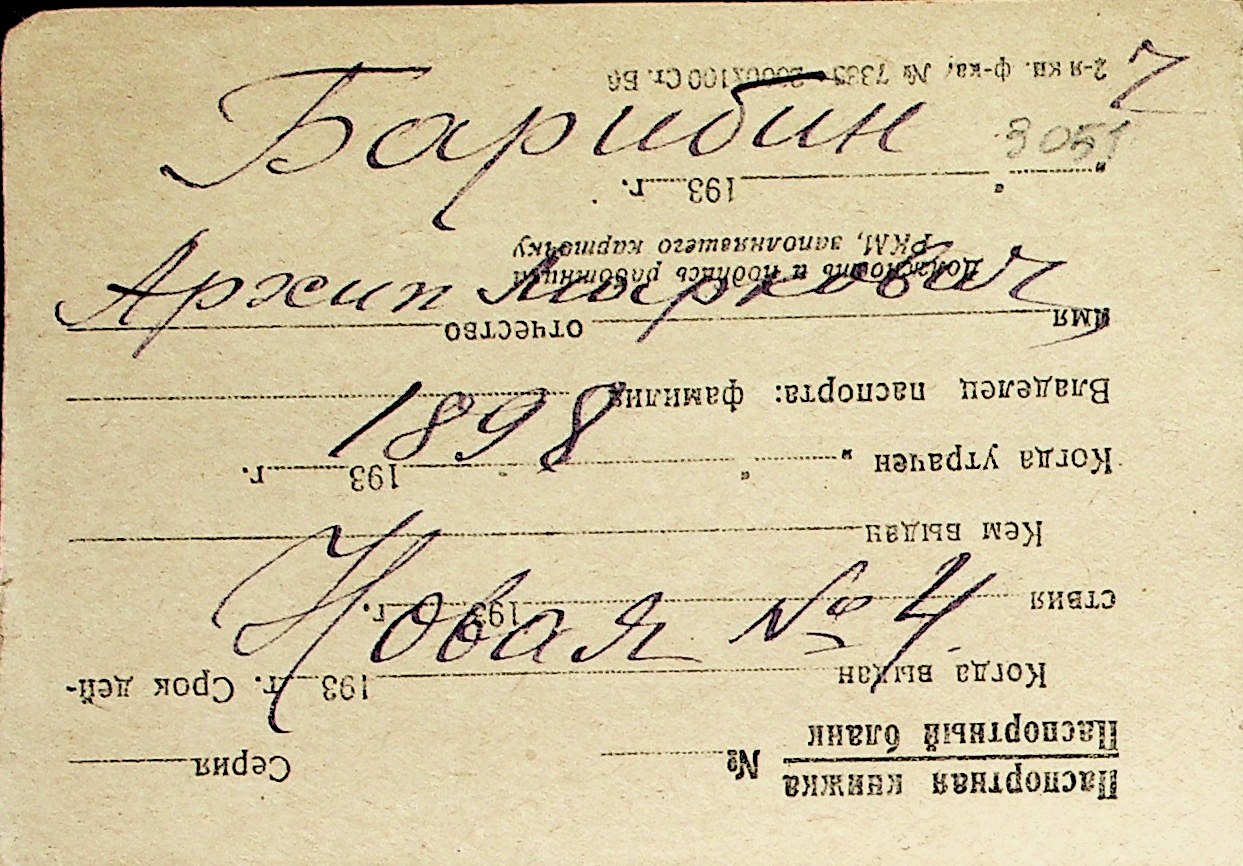 Барибин
Архип Маркович
1898
Новая № 4
3051
Паспортная книжка
Паспортный бланк
№ Серия
Когда выдан 193 г. Срок дей-
ствия 193 г.
Кем выдан
Когда утрачен „ “ 193 г.
Владелец паспорта: фамилия
имя отчество
Должность и подпись работника
РКМ, заполнявшего карточку
„ “ 193 г.
2-я кн. ф-ка,